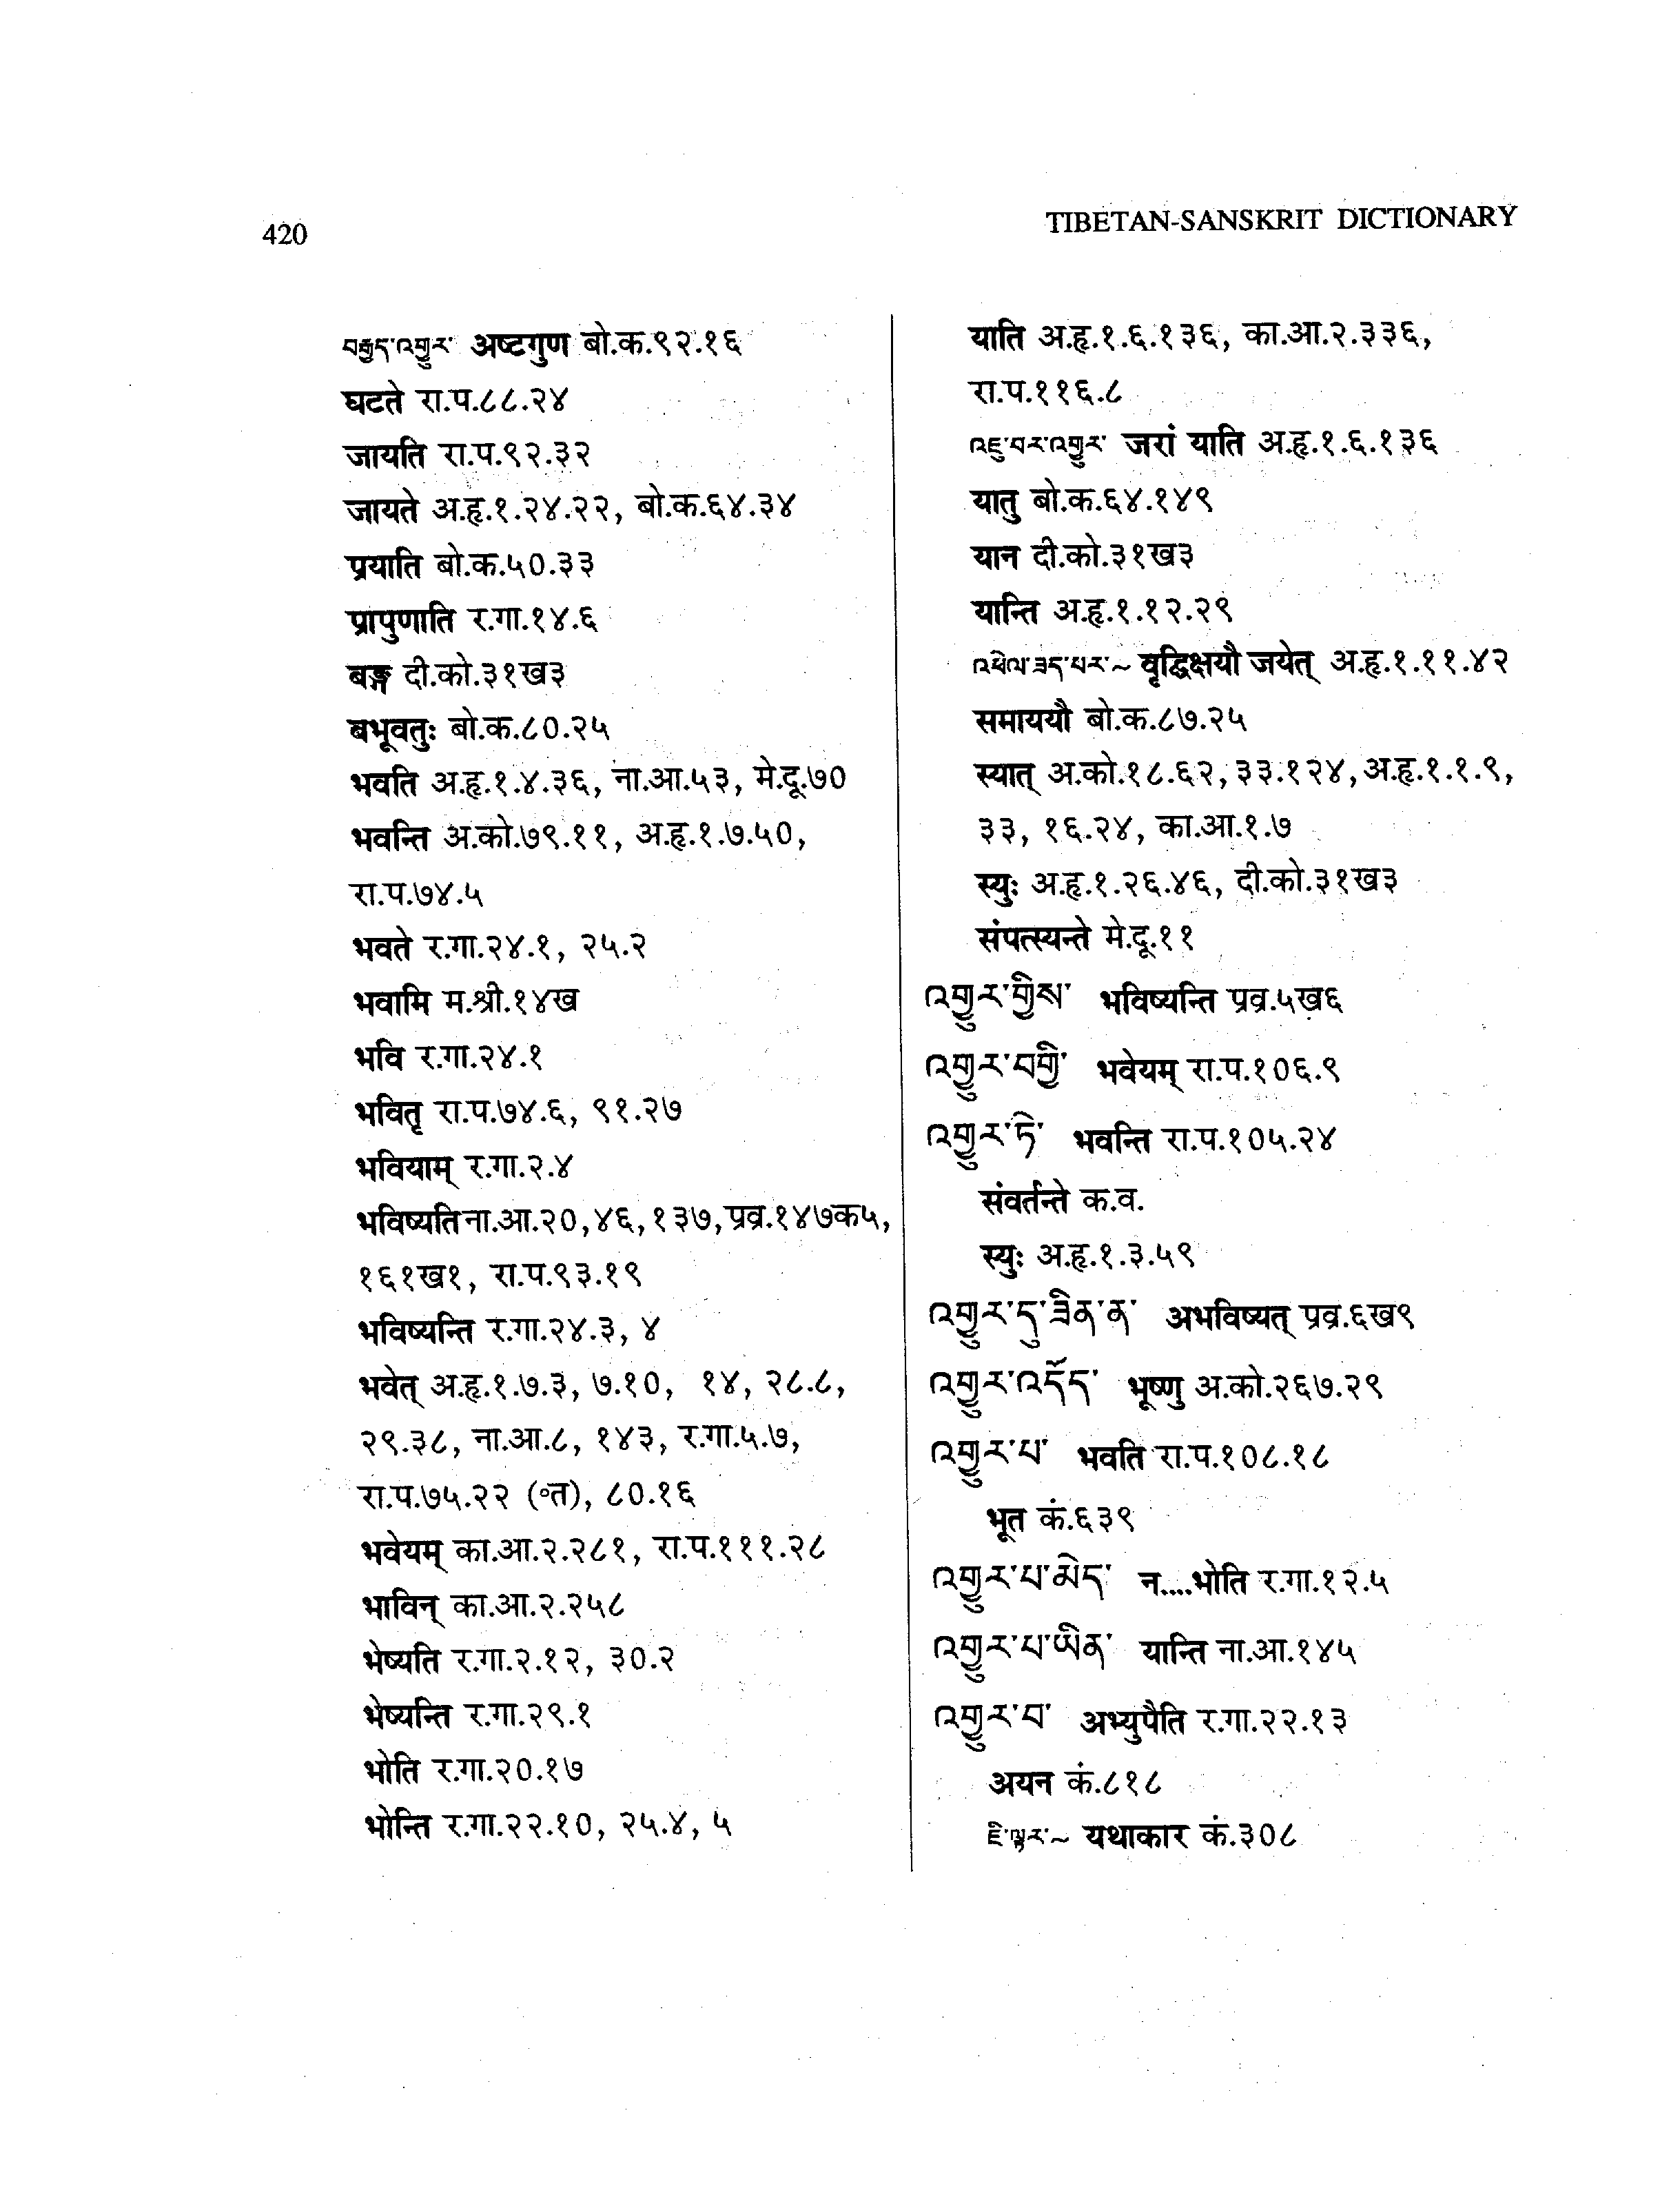 420
TIBETAN-SANSKRIT DICTIONARY
བརྒྱད་འགྱུར་ अष्टगुण बो.क.९२.१६
घटते रा.प.८८.२४
जायति रा.प.९२.३२
जायते अ.हृ.१.२४.२२, बो.क.६४.३४
प्रयाति बो.क.५०.३३
प्रापुणाति र.गा.१४.६
बङ्ग दी.को.३१ख३
बभूवतुः बो.क.८०.२५
भवति अ.हृ.१.४.३६, ना.आ.५३, मे.दू.७०
भवन्ति अ.को.७९.११, अ.हृ.१.७.५०,
रा.प.७४.५
भवते र.गा.२४.१, २५.२
भवामि म.श्री.१४ख
भवि र.गा.२४.१
भवितृ रा.प.७४.६, ९१.२७
भवियाम् र.गा.२.४
भविष्यति ना.आ.२०,४६,१३७,प्रव्र.१४७क५,
१६१ख१, रा.प.९३.१९
भविष्यन्ति र.गा.२४.३, ४
भवेत् अ.हृ.१.७.३, ७.१०, १४, २८.८,
२९.३८, ना.आ.८, १४३, र.गा.५.७,
रा.प.७५.२२ (॰त), ८०.१६
भवेयम् का.आ.२.२८१, रा.प.१११.२८
भाविन् का.आ.२.२५८
भेष्यति र.गा.२.१२, ३०.२
भेष्यन्ति र.गा.२९.१
भोति र.गा.२०.१७
भोन्ति र.गा.२२.१०, २५.४, ५
याति अ.हृ.१.६.१३६, का.आ.२.३३६,
रा.प.११६.८
འཇུ་བར་འགྱུར་ जरां याति अ.हृ.१.६.१३६
यातु बो.क.६४.१४९
यान दी.को.३१ख३
यान्ति अ.हृ.१.१२.२९
འཕེལ་ཟད་པར་~ वृद्धिक्षयौ जयेत् अ.हृ.१.११.४२
समाययौ बो.क.८७.२५
स्यात् अ.को.१८.६२,३३.१२४,अ.हृ.१.१.९,
३३, १६.२४, का.आ.१.७
स्युः अ.हृ.१.२६.४६, दी.को.३१ख३
संपत्स्यन्ते मे.दू.११
འགྱུར་གྱིས་ भविष्यन्ति प्रव्र.५ख६
འགྱུར་བགྱི་ भवेयम् रा.प.१०६.९
འགྱུར་ཏེ་ भवन्ति रा.प.१०५.२४
संवर्तन्ते क.व.
स्युः अ.हृ.१.३.५९
འགྱུར་དུ་ཟིན་ན་ अभविष्यत् प्रव्र.६ख९
འགྱུར་འདོད་ भूष्णु अ.को.२६७.२९
འགྱུར་པ་ भवति रा.प.१०८.१८
भूत कं.६३९
འགྱུར་པ་མེད་ न....भोति र.गा.१२.५
འགྱུར་པ་ཡིན་ यान्ति ना.आ.१४५
འགྱུར་བ་ अभ्युपैति र.गा.२२.१३
अयन कं.८१८
ཇི་ལྟར་~ यथाकार कं.३०८